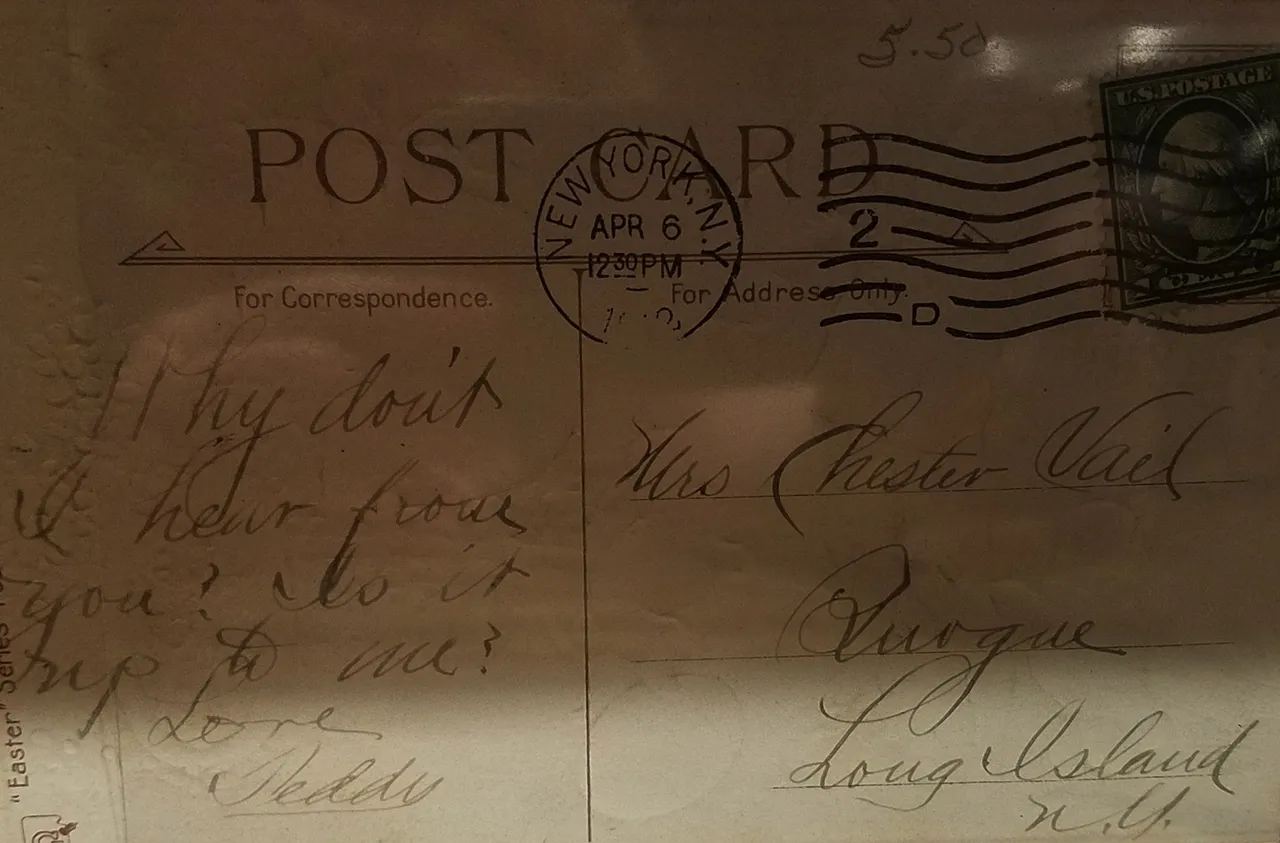 5.50
U.S. POSTAGE
POST CARD
NEW YORK, N.Y.
APR 6
12 30 PM
2
D
For Correspondence.
For Address Only.
Why don't
I hear from
you? Is it
up to me?
Love
Teddy
Mrs Chester Vail
Quogue
Long Island
N.Y.
"Easter" Series